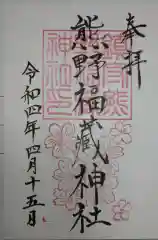 奉拝
熊野福藏神社
令和四年四月十五日